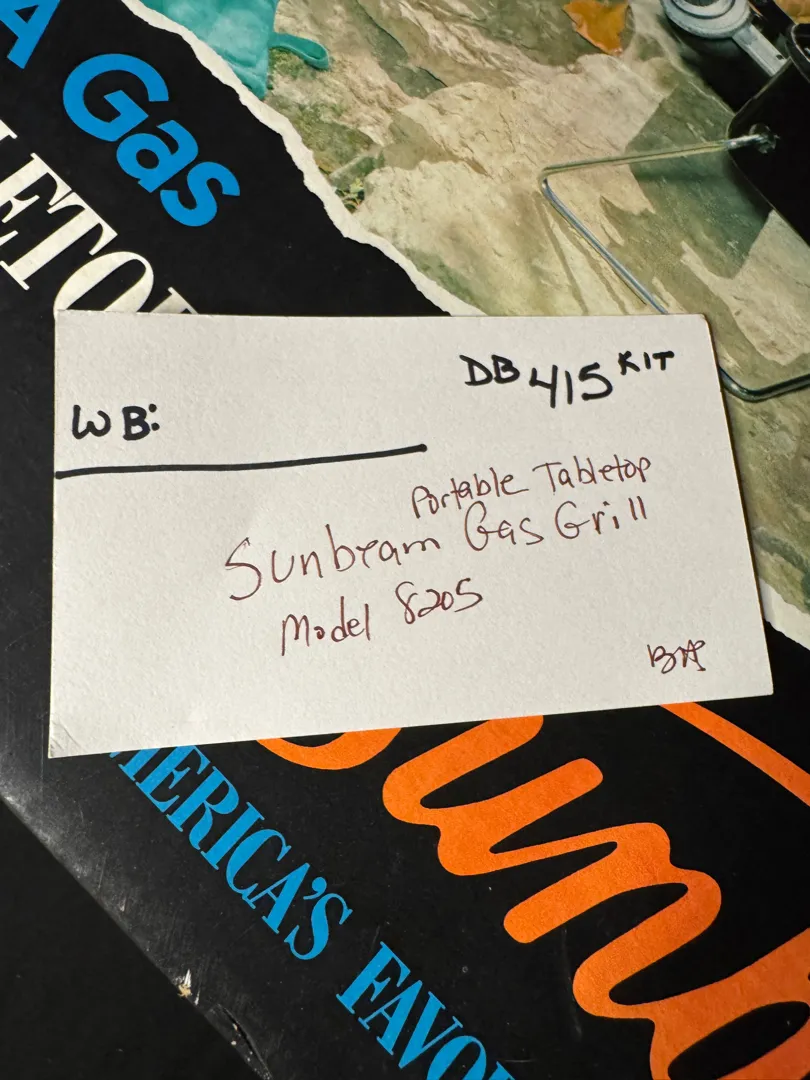 A Gas
LETO
DB 415 KIT
WB:
Portable Tabletop
Sunbeam Gas Grill
Model 8205
BA
MERICA'S FAVO
Sunb